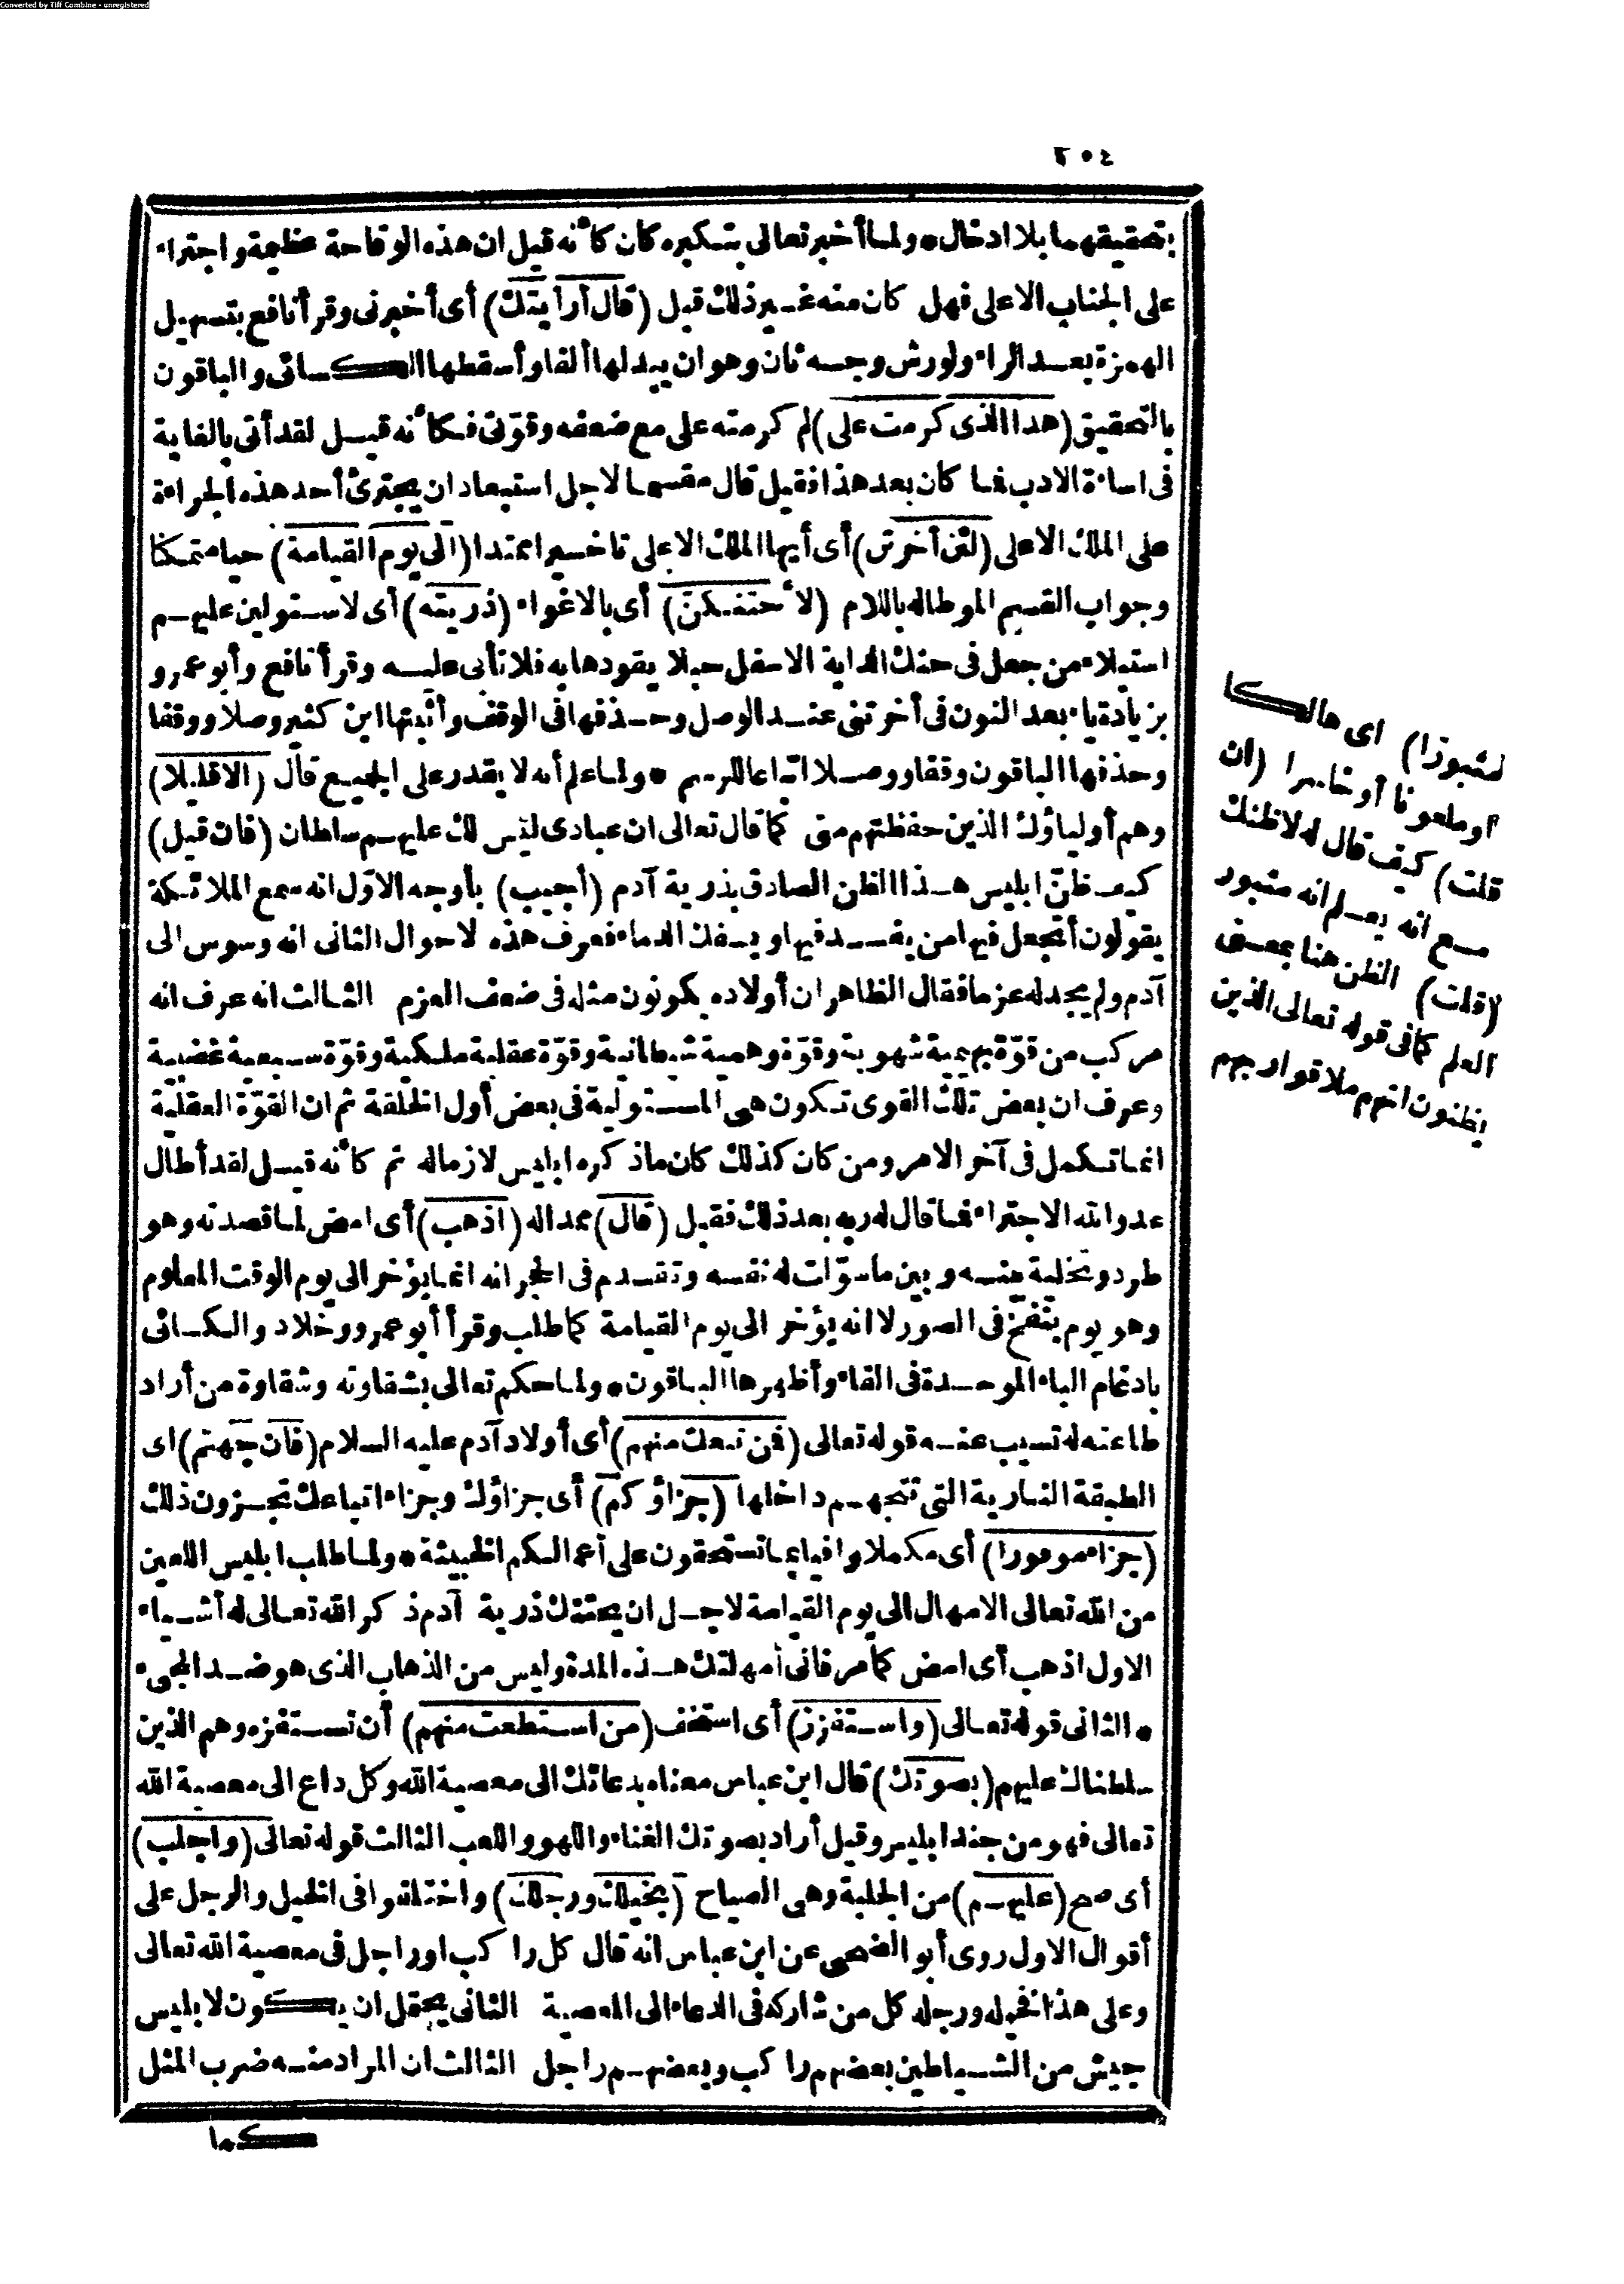 Converted by Tiff Combine - unregistered
٣٠٤
بتحقيقهما بلا ادخال • ولما أخبر تعالى بتكبره كان كأنه قيل ان هذه الوقاحة عظيمة واجتراء
على الجناب الاعلى فهل كان منه غير ذلك قيل (قال أرأيتك) أى أخبرنى وقرأ نافع بتسهيل
الهمزة بعد الراء ولورش وجه ثان وهو ان يبدلها ألفا وأسقطها الكسائى والباقون
بالتحقيق (هذا الذى كرمت على) لم كرمته على مع ضعفه وقوّتى فكأنه قيل لقد أتى بالغاية
فى اساءة الادب فما كان بعد هذا فقيل قال مقسما لاجل استبعاد ان يجترئ أحد هذه الجراءة
على الملك الاعلى (لئن أخرتن) أى أيها الملك الاعلى تاخيرا ممتدا (الى يوم القيامة) حيا متمكنا
وجواب القسم الموطا له باللام (لأحتنكنّ) أى بالاغواء (ذريته) أى لاستولين عليهم
استيلاء من جعل فى حنك الدابة الاسفل حبلا يقودها به فلا تأبى عليه وقرأ نافع وأبو عمرو
بزيادة ياء بعد النون فى أخرتنى عند الوصل وحذفها فى الوقف وأثبتها ابن كثير وصلا ووقفا
وحذفها الباقون وقفا ووصلا اتباعا للرسم • ولما علم أنه لا يقدر على الجميع قال (الا قليلا)
وهم أولياؤك الذين حفظتهم منى كما قال تعالى ان عبادى ليس لك عليهم سلطان (فان قيل)
كيف ظنّ ابليس هذا الظن الصادق بذرية آدم (أجيب) بأوجه الاوّل انه سمع الملائكة
يقولون أتجعل فيها من يفسد فيها ويسفك الدماء فعرف هذه لاحوال الثانى انه وسوس الى
آدم ولم يجد له عزما فقال الظاهر ان أولاده يكونون مثله فى ضعف العزم الثالث انه عرف انه
مركب من قوّة بهيمية شهوية وقوّة وهمية شيطانية وقوّة عقلية ملكية وقوّة سبعية غضبية
وعرف ان بعض تلك القوى تكون هى المستولية فى بعض أول الخلقة ثم ان القوّة العقلية
انما تكمل فى آخر الامر ومن كان كذلك كان ماذكره ابليس لازماله ثم كأنه قيل لقد أطال
عدوالله الاجتراء فما قال له ربه بعد ذلك فقيل (قال) ممداله (اذهب) أى امض لما قصدته وهو
طرد وتخلية بينه وبين ما سوّلت له نفسه وتقدم فى الحجر انه انما يؤخر الى يوم الوقت المعلوم
وهو يوم ينفخ فى الصور لا انه يؤخر الى يوم القيامة كما طلب وقرأ أبو عمرو وخلاد والكسائى
بادغام الباء الموحدة فى الفاء وأظهرها الباقون • ولما حكم تعالى بشقاوته وشقاوة من أراد
طاعته له تسبب عنه قوله تعالى (فمن تبعك منهم) أى أولاد آدم عليه السلام (فان جهنم) اى
الطبقة النارية التى تتجهم داخلها (جزاؤكم) أى جزاؤك وجزاء اتباعك تجزون ذلك
(جزاء موفورا) أى مكملا وافيا بما تستحقون على أعمالكم الخبيثة • ولما طلب ابليس اللعين
من الله تعالى الامهال الى يوم القيامة لاجل ان يحتنك ذرية آدم ذكر الله تعالى له أشياء
الاول اذهب أى امض كما مر فانى أمهلتك هذه المدة وليس من الذهاب الذى هو ضد المجىء
• الثانى قوله تعالى (واستفزز) أى استخف (من استطعت منهم) أن تستفزه وهم الذين
سلطناك عليهم (بصوتك) قال ابن عباس معناه بدعائك الى معصية الله وكل داع الى معصية الله
تعالى فهو من جند ابليس وقيل أراد بصوتك الغناء واللهو واللعب الثالث قوله تعالى (واجلب)
أى صح (عليهم) من الجلبة وهى الصياح (بخيلك ورجلك) واختلفوا فى الخيل والرجل على
أقوال الاول روى أبو الضحى عن ابن عباس انه قال كل راكب اوراجل فى معصية الله تعالى
وعلى هذا فخيله ورجله كل من شاركه فى الدعاء الى المعصية الثانى يحتمل ان يكون لابليس
جيش من الشياطين بعضهم راكب وبعضهم راجل الثالث ان المراد منه ضرب المثل
كما
لمثبورا) اى هالكا
او ملعونا أو خاسرا (ان
قلت) كيف قال له لاظنك
مع انه يعلم انه مثبور
(قلت) الظن هنا بمعنى
العلم كما فى قوله تعالى الذين
يظنون انهم ملاقوا ربهم